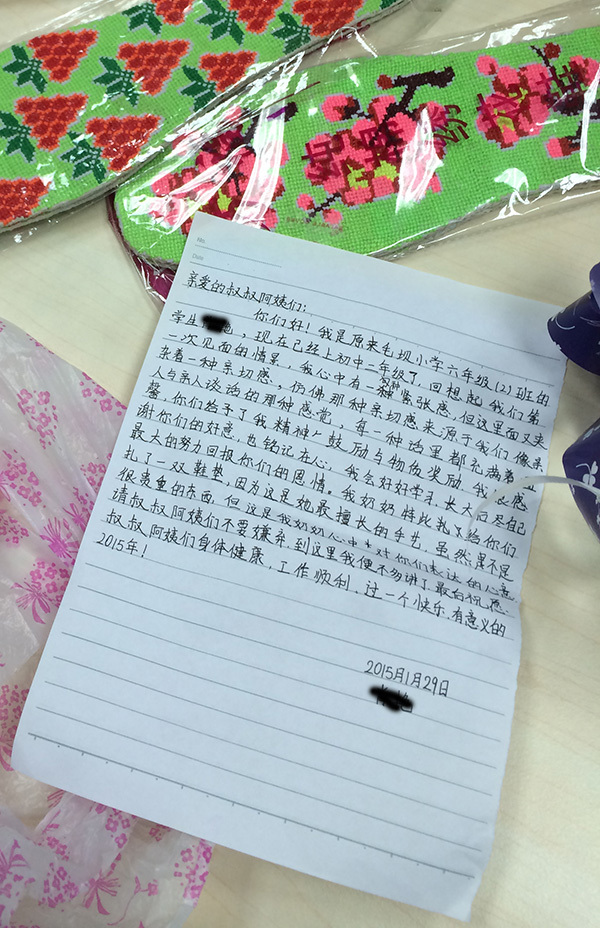 No.
Date
亲爱的叔叔阿姨们:
你们好！我是原来毛坝小学六年级(2)班的
学生，现在已经上初中一年级了，回想起我们第
一次见面的情景，我心中有一种紧张感，但这里面又夹
杂着一种亲切感，仿佛那种亲切感来源于我们像亲
人与亲人谈话的那种感觉，每一种话里都充满着温
馨，你们给予了我精神上鼓励与物质奖励，我很感
谢你们的好意，也铭记在心，我会好好学习，长大后尽自己
最大的努力回报你们的恩情。我奶奶特此扎了给你们
扎了一双鞋垫，因为这是她最擅长的手艺，虽然算不是
很贵重的东西，但这是我奶奶心中对你们表达的心意
请叔叔阿姨们不要嫌弃，到这里我便不多讲了，最后祝愿
叔叔阿姨们身体健康，工作顺利，过一个快乐，有意义的
2015年！
2015月1月29日